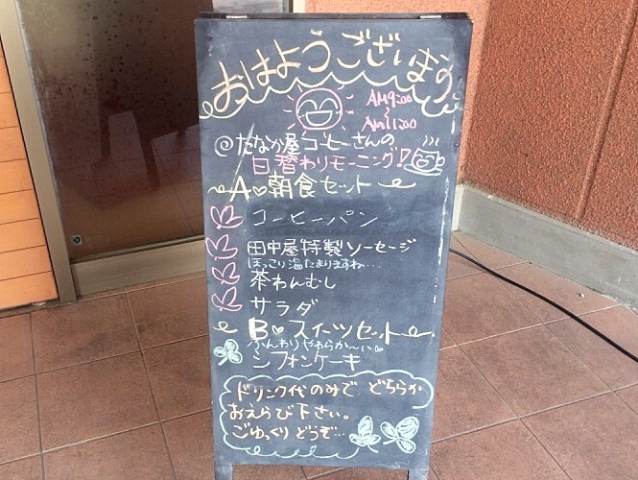 おはようございます
AM9:00
～
AM11:00
@たなか屋コーヒーさんの
日替わりモーニング!
A♡朝食セット
コーヒーパン
田中屋特製ソーセージ
ほっこり温たまりますね…
茶わんむし
サラダ
B♡スイーツセット
ふんわりやわらか〜い♡
シフォンケーキ
ドリンク代のみで どちらか
おえらび下さい。
ごゆっくりどうぞ…